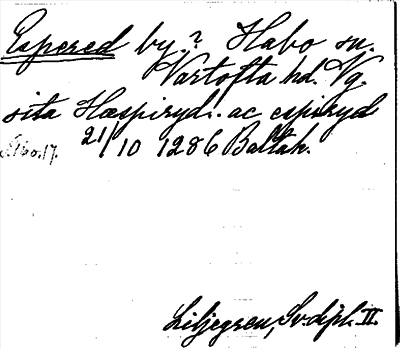 Espered by.? Habo sn.
Vartofta hd. Vg.
sita Hæspiryd.. ac espiryd
21/10 1286 Baltak.
Liljegren, Sv. dipl. II.